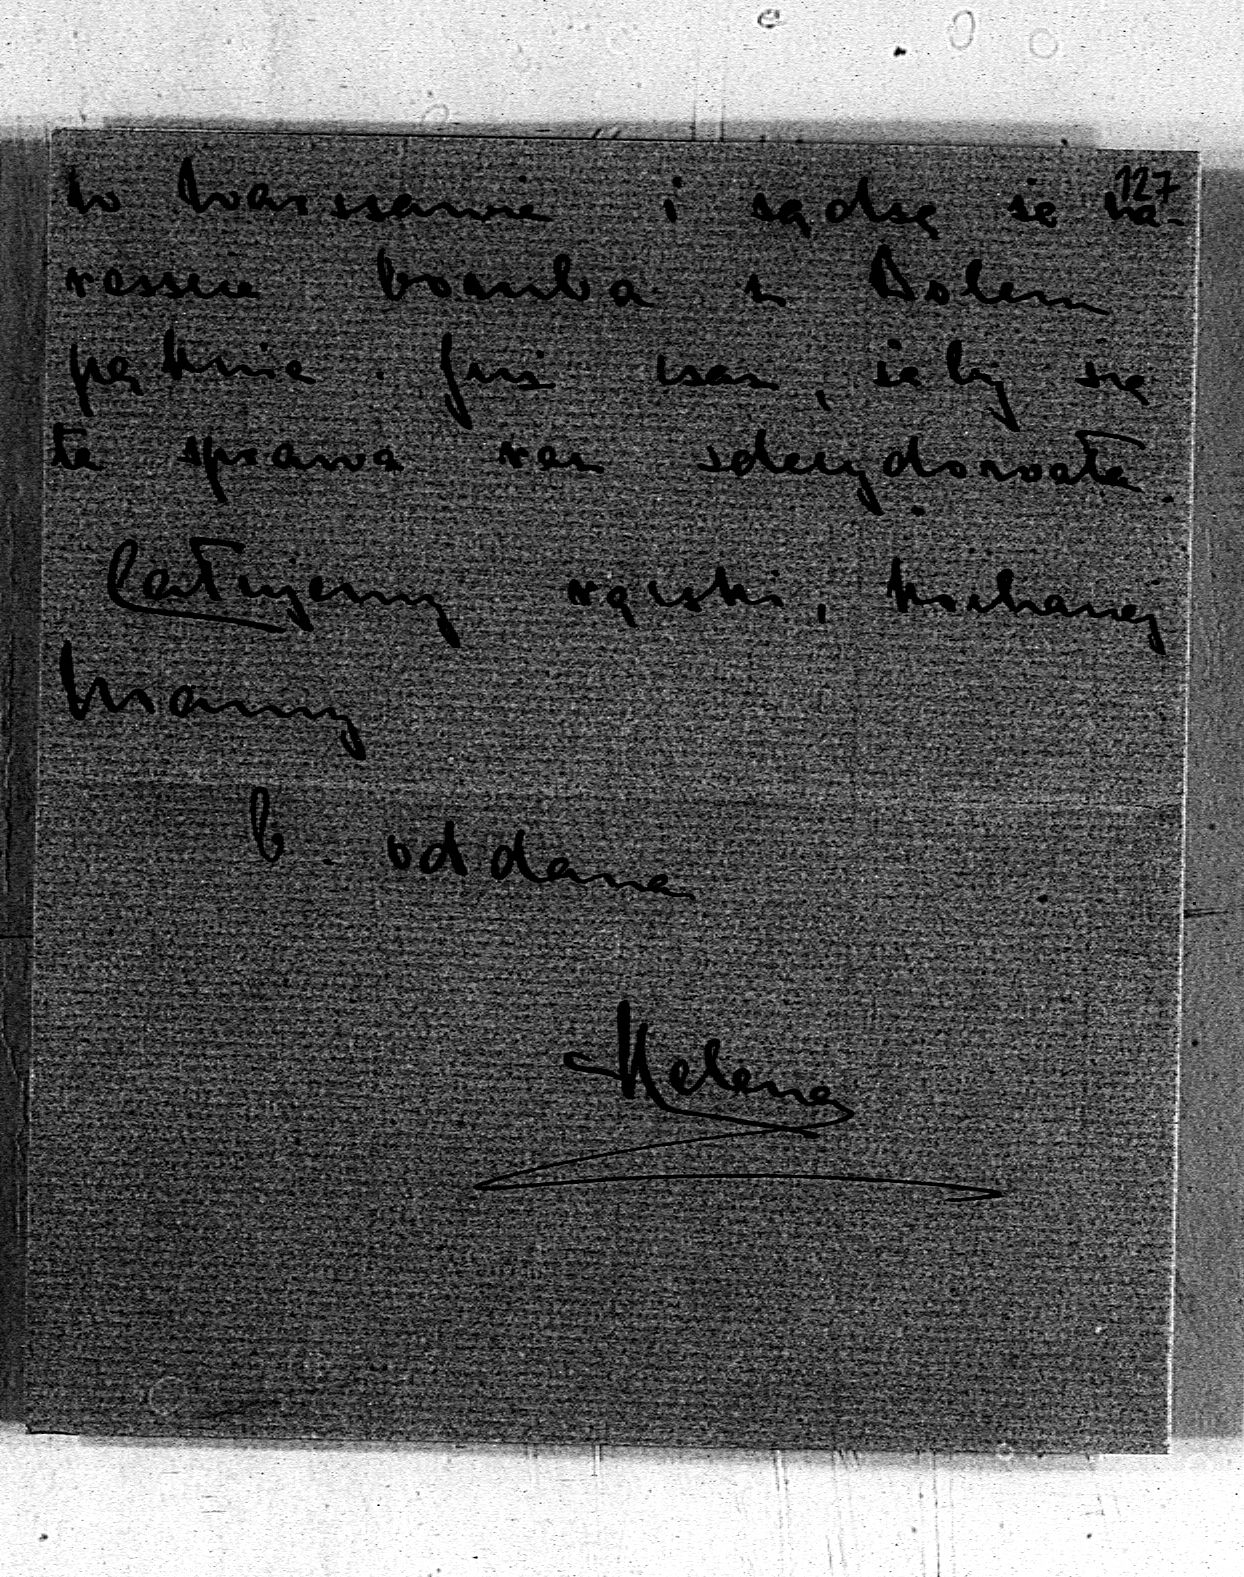 127
w Warszawie i sądzę że na-
reszcie bomba z Dolem
pęknie. Już czas, żeby się
ta sprawa raz zdecydowała.
Całujemy rączki, kochanej
Mamy
b. oddana
Helena